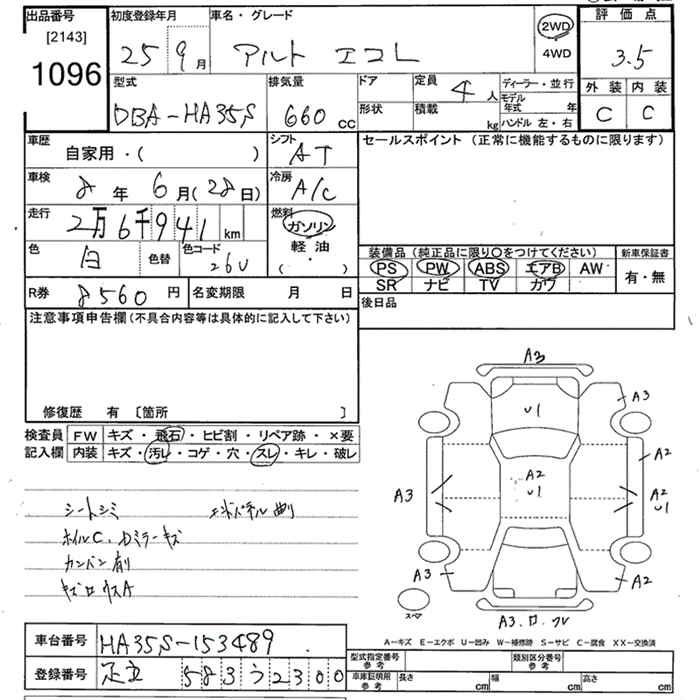 出品番号
[2143]
1096
初度登録年月
25 9月
車名・グレード
アルト エコL
2WD
4WD
評価点
3.5
外装 内装
C C
型式
DBA-HA35S
排気量
660 cc
ドア
形状
定員
4人
積載 kg
ディーラー・並行
モデル年式 年
ハンドル 左・右
車歴
自家用・( )
シフト
AT
セールスポイント (正常に機能するものに限ります)
車検
8年6月(28日)
冷房
A/C
走行
2万6千941km
燃料
ガソリン
軽油
( ・ )
色
白
色替
色コード
26U
装備品 (純正品に限り〇をつけてください)
PS PW ABS エアB AW
SR ナビ TV カワ
新車保証書
有・無
R券
8560円
名変期限 月 日
後日品
注意事項申告欄(不具合内容等は具体的に記入して下さい)
修復歴 有 〔箇所 〕
検査員記入欄
FW キズ・飛石・ヒビ割・リペア跡・×要
内装 キズ・汚レ・コゲ・穴・スレ・キレ・破レ
シートシミ
ホイルC、Dミラーキズ
A3
A3
U1
A2
A2
U1
A3
A2
U1
A3
A2
スペア
A3.
A-キズ E-エクボ U-凹み W-補修跡 S-サビ C-腐食 XX-交換済
車台番号
HA35S-153489
登録番号
足立 583 う 2300
型式指定番号
参考
類別区分番号
参考
車庫証明用
参考
長さ cm
幅 cm
高さ cm